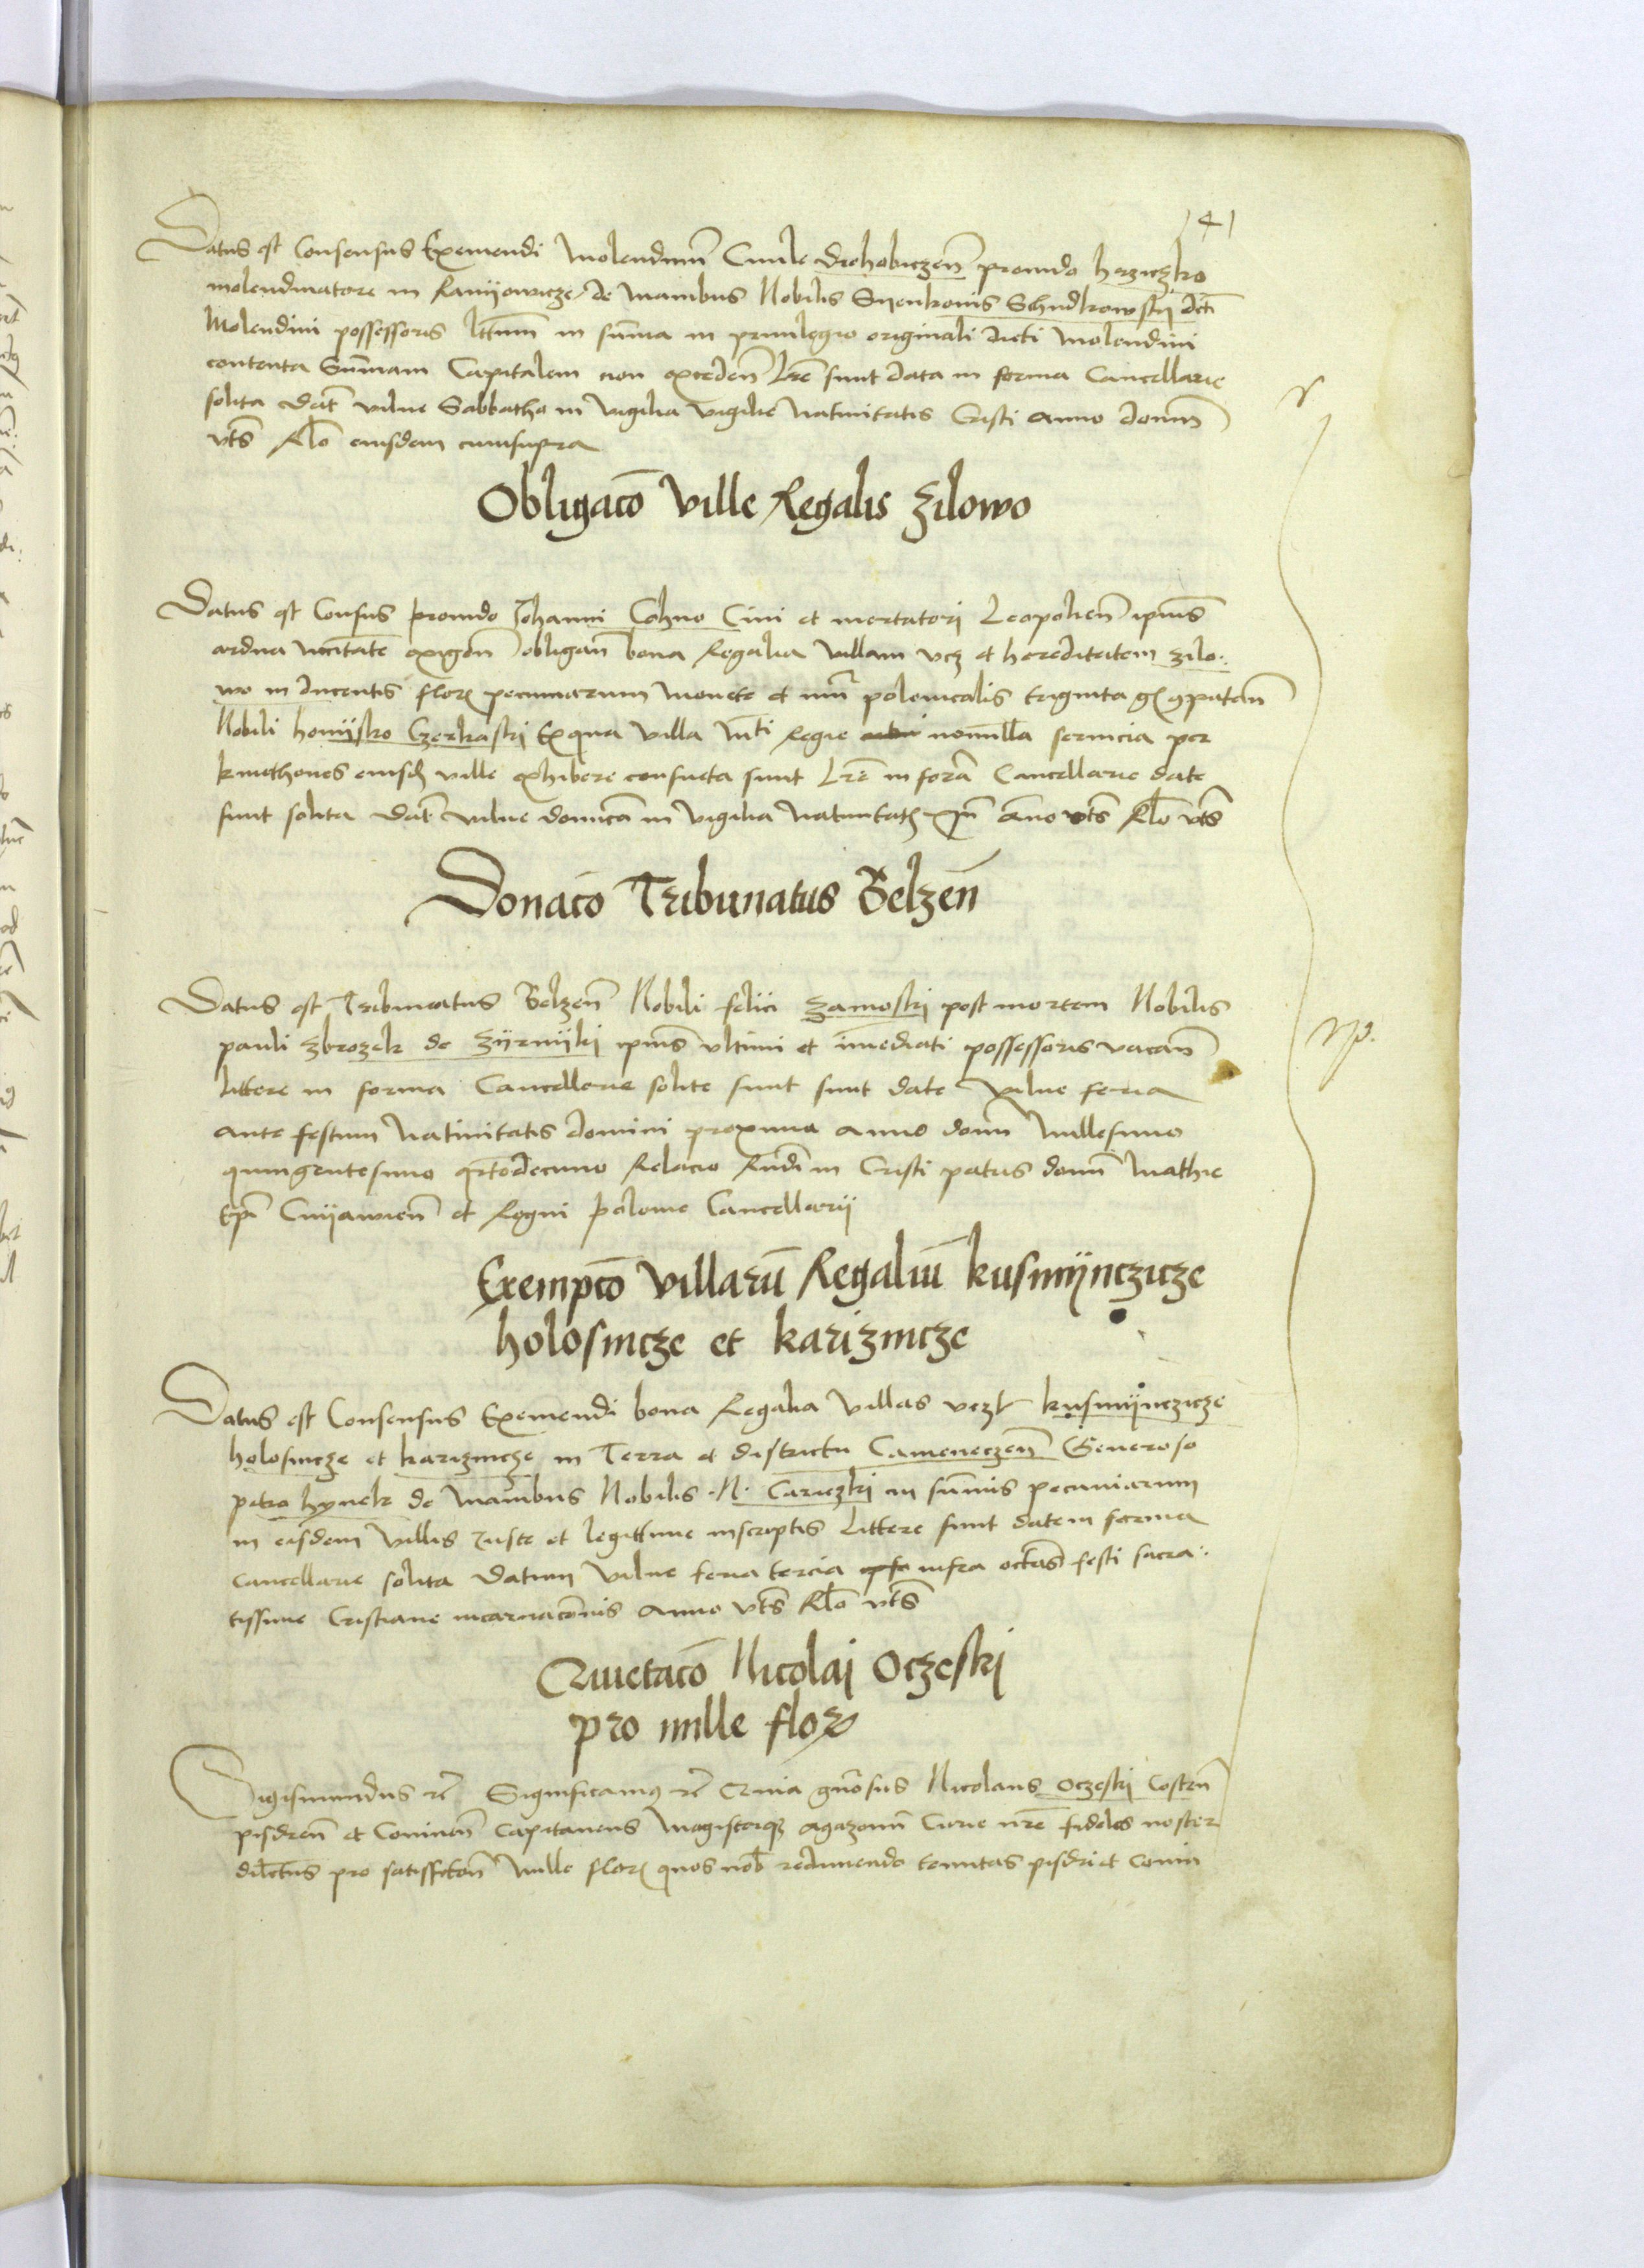 141
Datus est Consensus Exemendi Molendinum Civile Drohobiczen provido hrziczko
molendinatore in Raniyowicze de manibus Nobilis Syenkonis Schudkowsky dcti
Molendini possessoris ltimi in summa in privilegio originali dicti Molendini
contenta Summam Capitalem non exceden Lre sunt data in forma Cancellarie
solita Dat Vilne Sabbatho in vigilia vigilie Nativitatis Cristi anno domini
vts Rlo eiusdem cuiussupra
Obligaco Ville Regalis Zilowo
Datus est Consus provido Johanni Cohno Civi et mercatori Leopolien ipius
ardua necitate exigen obligan bona Regalia Villam vcz et hereditatem zilo
wo in ducentis flor pecuniarum monete et nuri polonicalis triginta gr computan
Nobili homysko Czerkaski Exqua Villa Mti Regie nonnulla servicia per
kmethones eiusd ville exhibere consueta sunt Lre in fora Cancellarie date
sunt solita Dat Vilne dominica in Vigilia Nativitat Xpi Ano vts Rlo vts
Donaco Tribunatus Belzen
Datus est Tribunatus Belzen Nobili felici zamoski post mortem Nobilis
pauli zbrozek de zyrnyki ipius ultimi et imediati possessoris vacan
littere in forma Cancellarie solite sunt sunt date Vilne feria
ante festum Nativitatis domini proxima anno domi Millesimo
quingentesimo qrtodecimo Relacio Rndi in Cristi patris domi Mathie
Epi Cuyawien et Regni polonie Cancellarii
Exempco Villaru Regaliu kusmynczicze
holosincze et karizincze
Datus est Consensus Exemendi bona Regalia Villas vczt kusmynczicze
holosincze et karizincze in Terra et districtu Cameneczen Generoso
petro hynek de Manibus Nobilis .N. Cariczki in summis pecuniarum
in eisdem Villis Juste et legittime inscriptis Littere sunt date in forma
cancellarie solita Datum Vilne feria tercia infra octas festi sacra
tissime Cristiane incarnaconis anno vts Rlo vts
Quietaco Nicolai Oczeski
pro mille flor
Sigismundus rc Significamus rc Quia gnrosus Nicolaus oczeski Costrn
pisdren et Coninen Capitaneus Magisterque agazonum Curie nre fideles noster
dilectus pro satisfccon Mille flor quos nob redimendo tenutas pisdri et Conin